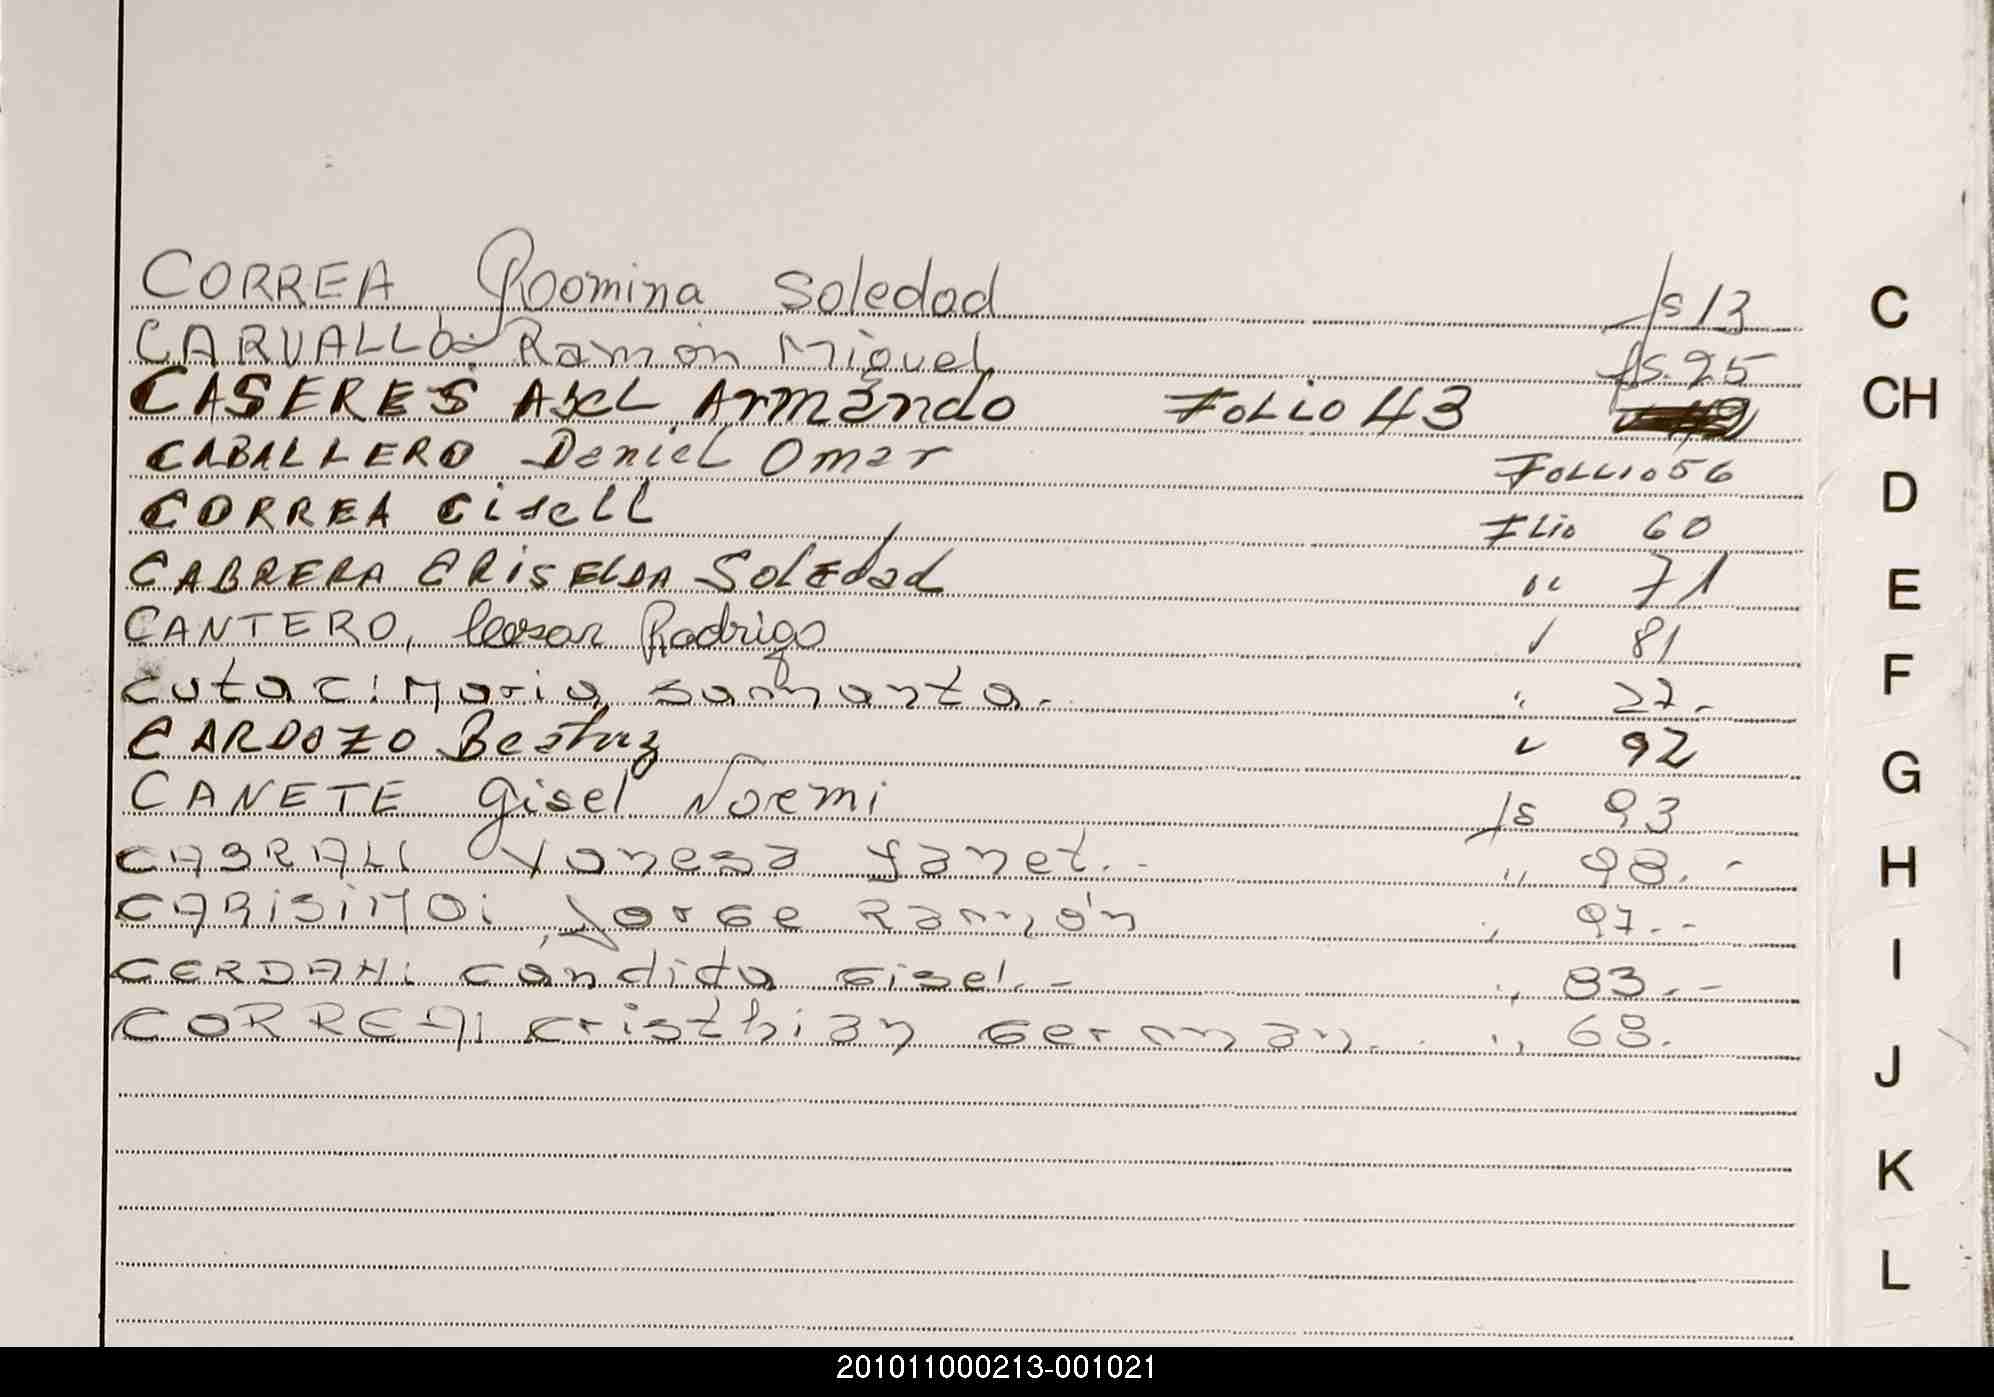 CORREA Roomina Soledad fs 13
CARVALLO Ramón Miguel fs. 25
CASERES AXEL ARMANDO FOLIO 43
CABALLERO DANIEL Omar FOLLIO 56
CORREA Gisell FLio 60
CABRERA GRISELDA Soledad " 71
CANTERO, Cesar Rodrigo 81
Maria samanta.- " 27.-
CARDOZO Beatriz 92
CANETE Gisel Noemi fs 93
CABRAL: Vanesa Yanet.- " 98.-
CARISIMO: Jorge Ramón 97.--
CERDAN: candida Gisel.- " 83.--
CORREA: cristhian German. " 68.
C
CH
D
E
F
G
H
I
J
K
L
201011000213-001021